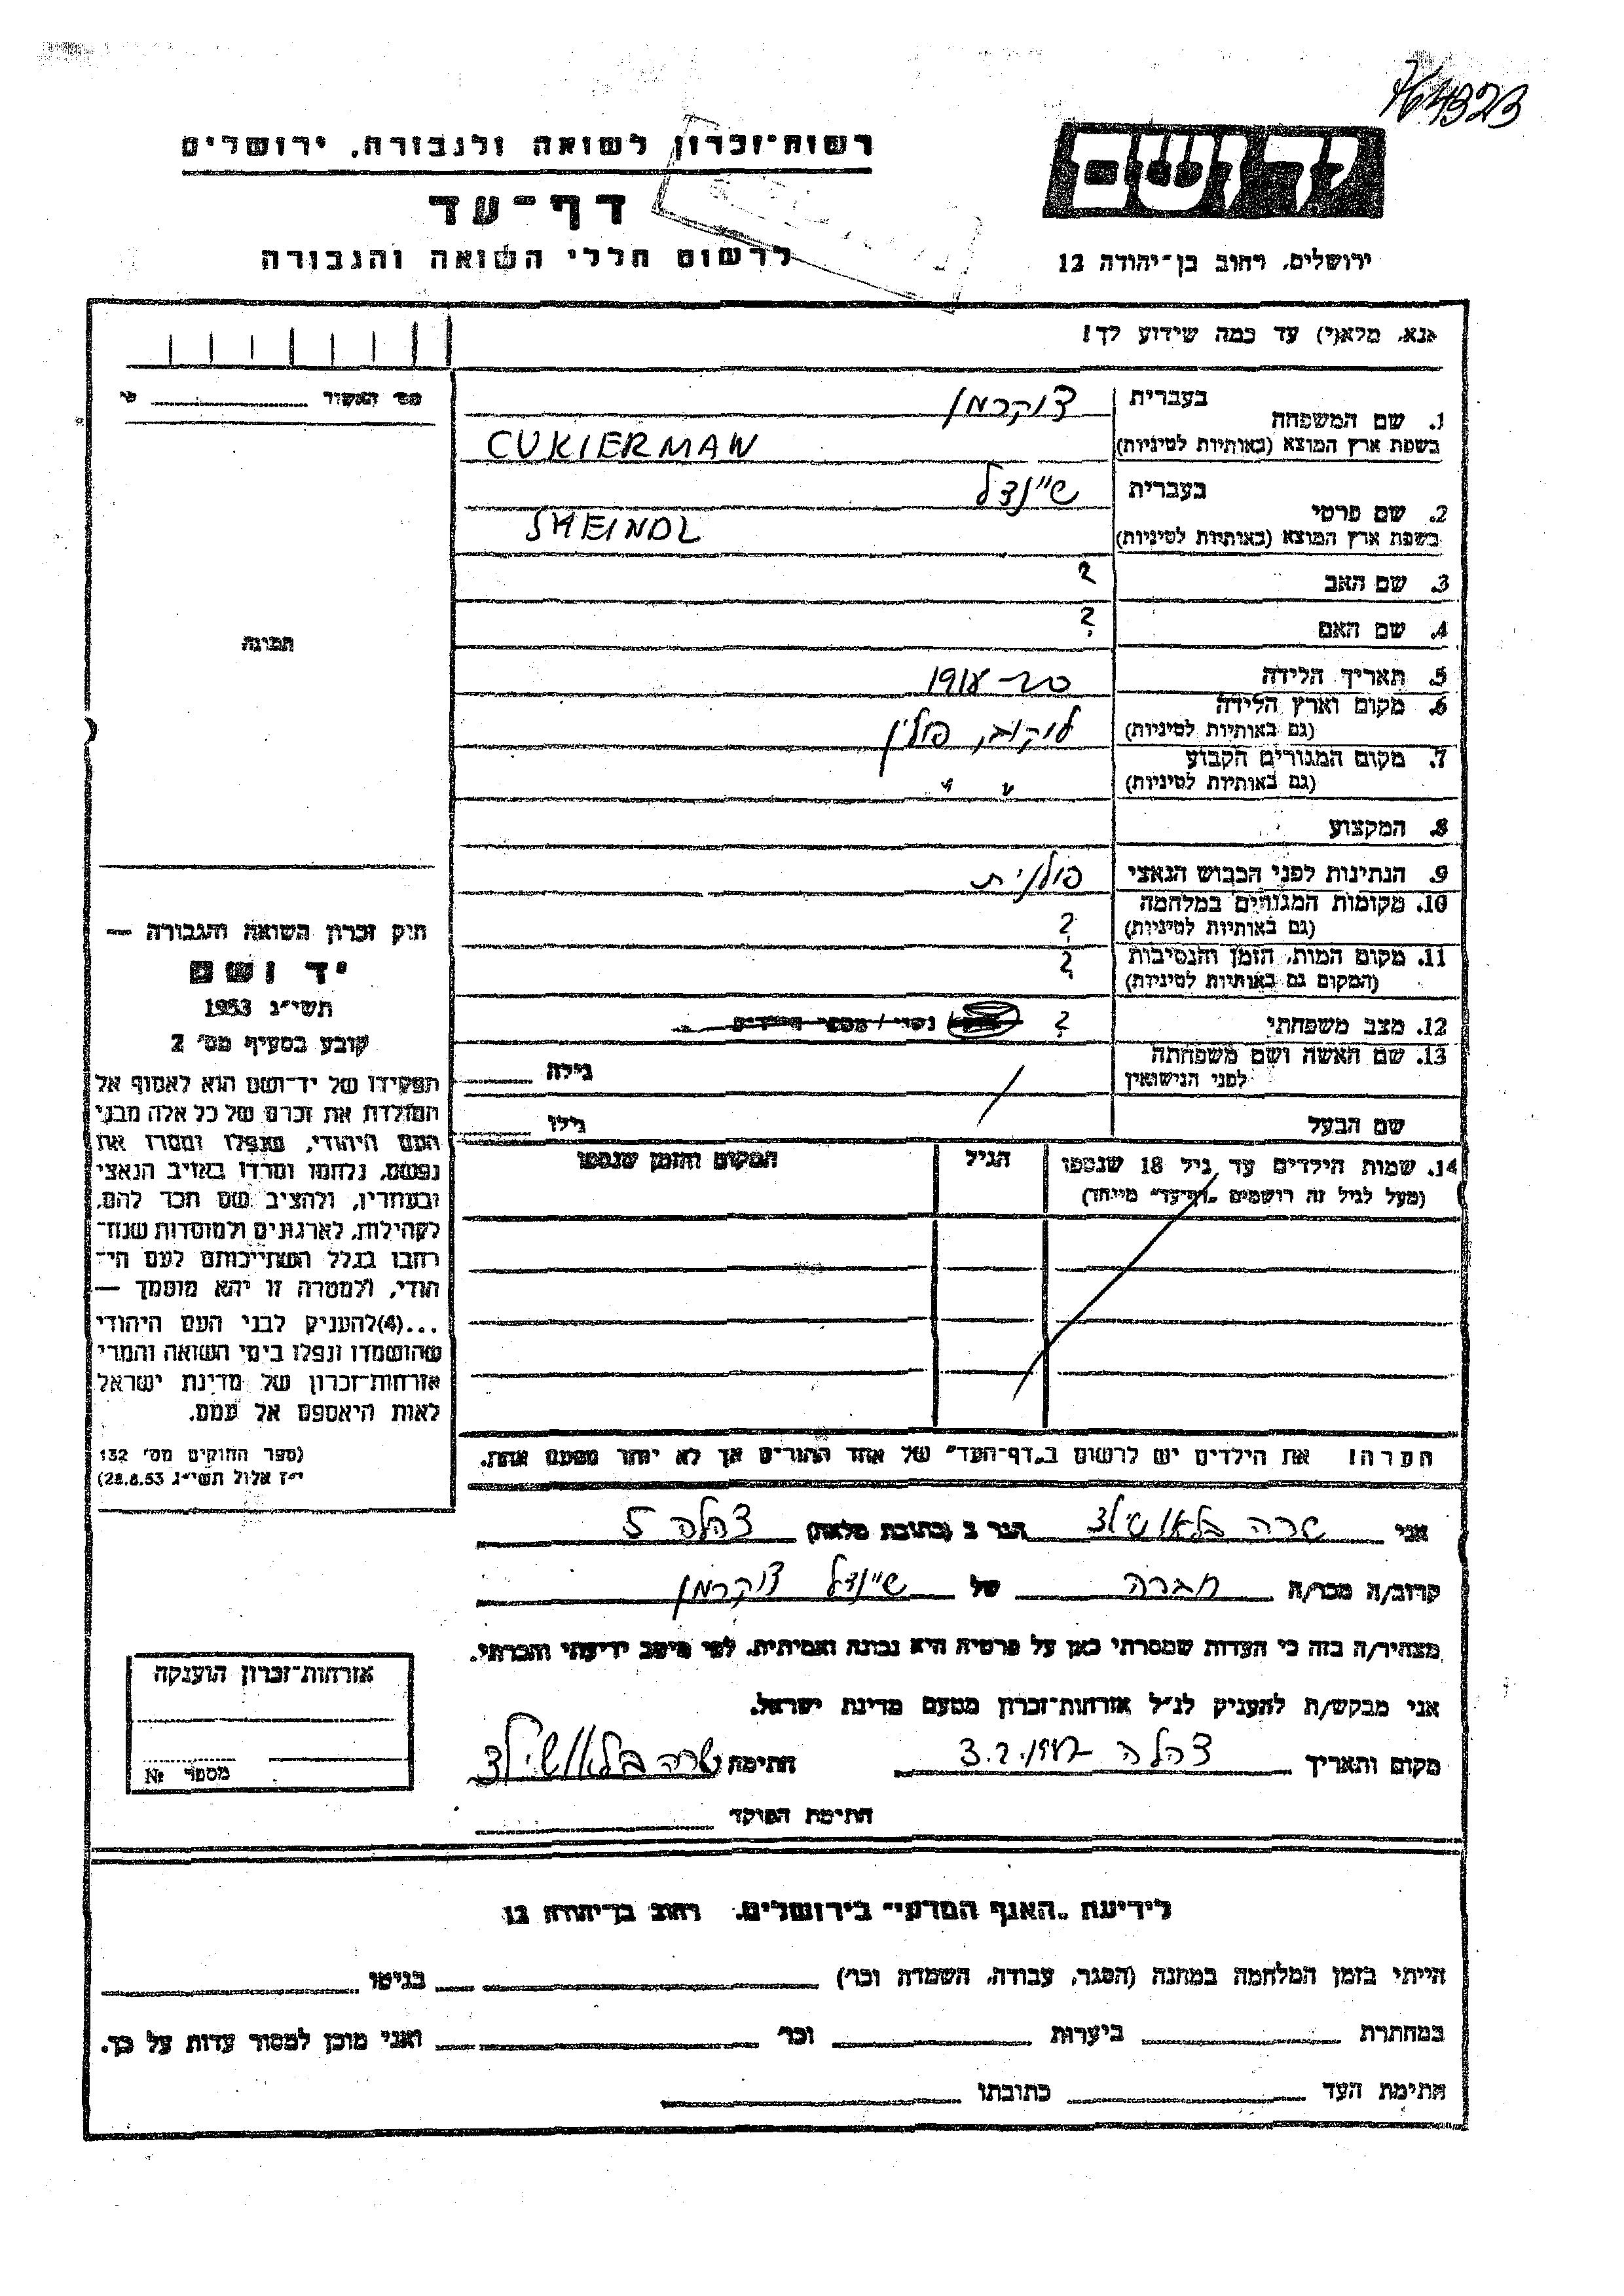 764323
רשות־זכרון לשואה ולגבורה, ירושלים
יד ושם
דף־עד
לרשום חללי השואה והגבורה
ירושלים, רחוב בן־יהודה 12
נא, מלא(י) עד כמה שידוע לך!
מס' האשור
1. שם המשפחה בעברית צוקרמן
בשפת ארץ המוצא (באותיות לטיניות) CUKIERMAN
2. שם פרטי בעברית שיינדל
בשפת ארץ המוצא (באותיות לטיניות) SHEINDL
3. שם האב ?
4. שם האם ?
תמונה
5. תאריך הלידה 1918
6. מקום וארץ הלידה
(גם באותיות לטיניות) לוקוב, פולין
7. מקום המגורים הקבוע
(גם באותיות לטיניות) " "
8. המקצוע
9. הנתינות לפני הכבוש הנאצי פולנית
10. מקומות המגורים במלחמה
(גם באותיות לטיניות) ?
11. מקום המות, הזמן והנסיבות
(המקום גם באותיות לטיניות) ?
12. מצב משפחתי ?
13. שם האשה ושם משפחתה
לפני הנישואין גילה
שם הבעל גילו
14. שמות הילדים עד גיל 18 שנספו הגיל המקום והזמן שנספו
(מעל לגיל זה רושמים „דף־עד" מיוחד)
חוק זכרון השואה והגבורה —
יד ושם
תשי"ג 1953
קובע בסעיף מס' 2
תפקידו של יד־ושם הוא לאסוף אל
המולדת את זכרם של כל אלה מבני
העם היהודי, שנפלו ומסרו את
נפשם, נלחמו ומרדו באויב הנאצי
ובעוזריו, ולהציב שם וזכר להם,
לקהילות, לארגונים ולמוסדות שנח־
רבו בגלל השתייכותם לעם הי־
הודי, ולמטרה זו יהא מוסמך —
...(4)להעניק לבני העם היהודי
שהושמדו ונפלו בימי השואה והמרי
אזרחות־זכרון של מדינת ישראל
לאות היאספם אל עמם.
(ספר החוקים מס' 132
י"ז אלול תשי"ג 28.8.53)
הערה! את הילדים יש לרשום ב„דף־העד" של אחד ההורים אך לא יותר מפעם אחת.
אני שרה בלאושילד הגר ב (כתובת מלאה) צהלה 5
קרוב/ה מכר/ה חברה של שיינדל צוקרמן
מצהיר/ה בזה כי העדות שמסרתי כאן על פרטיה היא נכונה ואמיתית, לפי מיטב ידיעתי והכרתי.
אני מבקש/ת להעניק לנ"ל אזרחות־זכרון מטעם מדינת ישראל.
מקום ותאריך צהלה 3.2.1987 חתימה שרה בלאושילד
חתימת הפוקד
אזרחות־זכרון הוענקה
מספר №
לידיעת „האגף המדעי" בירושלים, רחוב בן־יהודה 12
הייתי בזמן המלחמה במחנה (הסגר, עבודה, השמדה וכו') בגיטו
במחתרת ביערות וכו' ואני מוכן למסור עדות על כך.
חתימת העד כתובתו